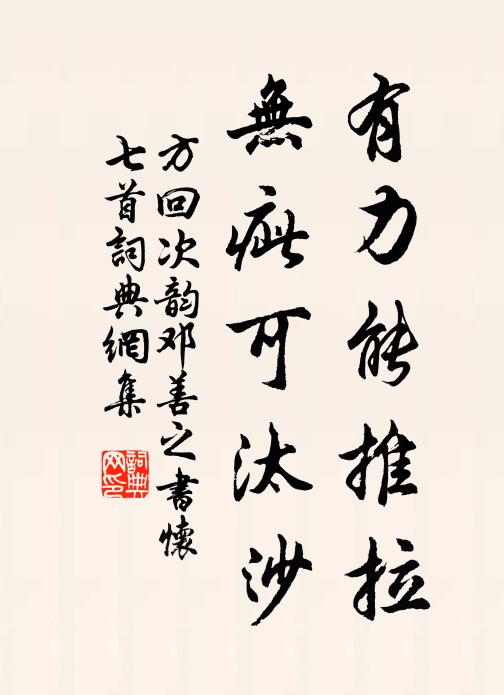 有力能推拉
無疵可汰沙
方回次韵邓善之書懷
七首詞典網集
詞典
网印